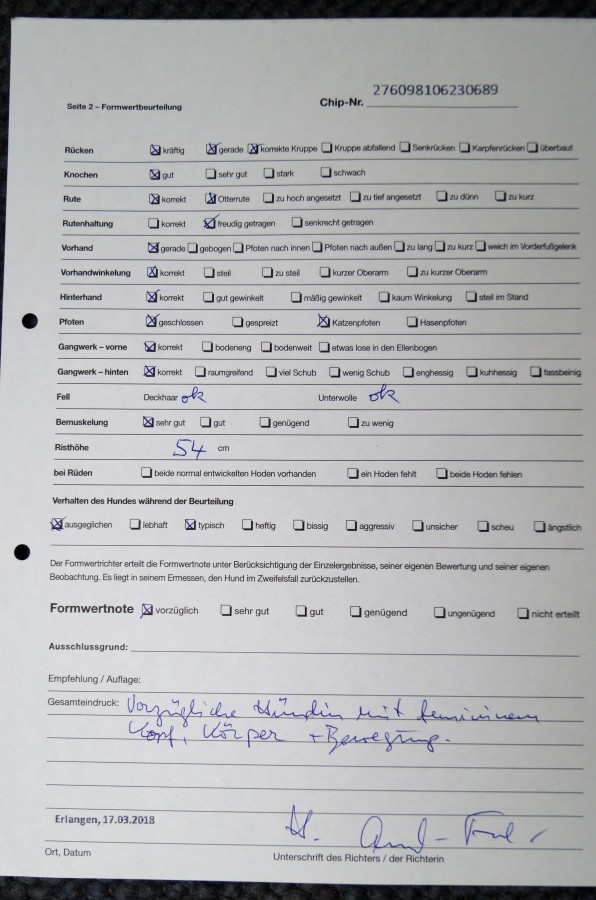 276098106230689
Seite 2 – Formwertbeurteilung Chip-Nr.
Rücken ☒ kräftig ☒ gerade ☒ korrekte Kruppe ☐ Kruppe abfallend ☐ Senkrücken ☐ Karpfenrücken ☐ überbaut
Knochen ☒ gut ☐ sehr gut ☐ stark ☐ schwach
Rute ☒ korrekt ☒ Otterrute ☐ zu hoch angesetzt ☐ zu tief angesetzt ☐ zu dünn ☐ zu kurz
Rutenhaltung ☐ korrekt ☒ freudig getragen ☐ senkrecht getragen
Vorhand ☒ gerade ☐ gebogen ☐ Pfoten nach innen ☐ Pfoten nach außen ☐ zu lang ☐ zu kurz ☐ weich im Vorderfußgelenk
Vorhandwinkelung ☒ korrekt ☐ steil ☐ zu steil ☐ kurzer Oberarm ☐ zu kurzer Oberarm
Hinterhand ☒ korrekt ☐ gut gewinkelt ☐ mäßig gewinkelt ☐ kaum Winkelung ☐ steil im Stand
Pfoten ☒ geschlossen ☐ gespreizt ☒ Katzenpfoten ☐ Hasenpfoten
Gangwerk – vorne ☒ korrekt ☐ bodeneng ☐ bodenweit ☐ etwas lose in den Ellenbogen
Gangwerk – hinten ☒ korrekt ☐ raumgreifend ☐ viel Schub ☐ wenig Schub ☐ enghessig ☐ kuhhessig ☐ fassbeinig
Fell Deckhaar ok Unterwolle ok
Bemuskelung ☒ sehr gut ☐ gut ☐ genügend ☐ zu wenig
Risthöhe 54 cm
bei Rüden ☐ beide normal entwickelten Hoden vorhanden ☐ ein Hoden fehlt ☐ beide Hoden fehlen
Verhalten des Hundes während der Beurteilung
☒ ausgeglichen ☐ lebhaft ☒ typisch ☐ heftig ☐ bissig ☐ aggressiv ☐ unsicher ☐ scheu ☐ ängstlich
Der Formwertrichter erteilt die Formwertnote unter Berücksichtigung der Einzelergebnisse, seiner eigenen Bewertung und seiner eigenen
Beobachtung. Es liegt in seinem Ermessen, den Hund im Zweifelsfall zurückzustellen.
Formwertnote ☒ vorzüglich ☐ sehr gut ☐ gut ☐ genügend ☐ ungenügend ☐ nicht erteilt
Ausschlussgrund:
Empfehlung / Auflage:
Gesamteindruck: Vorzügliche Hündin mit femininem
Kopf, Körper + Bewegung.
Erlangen, 17.03.2018
Ort, Datum Unterschrift des Richters / der Richterin